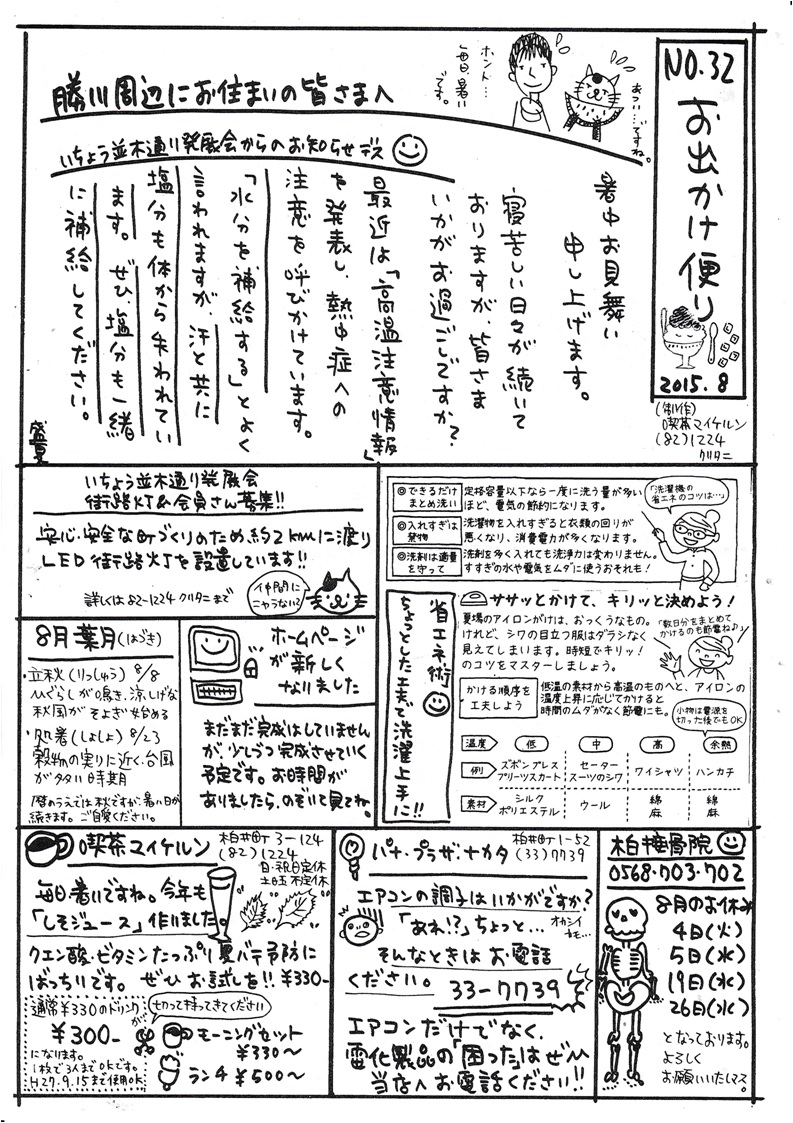 NO.32
お出かけ便り
2015.8
(制作)
喫茶マイケルン
(82)1224
クリタニ
ホント…
毎日、暑い
です。
あつい…ですね。
勝川周辺にお住まいの皆さまへ
いちょう並木通り発展会からのお知らせデス
暑中お見舞い
申し上げます。
寝苦しい日々が続いて
おりますが、皆さま
いかがお過ごしですか？
最近は、「高温注意情報」
を発表し、熱中症への
注意を呼びかけています。
「水分を補給する」とよく
言われますが、汗と共に
塩分も体から失われてい
ます。ぜひ、塩分も一緒
に補給してください。
盛夏
いちょう並木通り発展会
街路灯&会員さん募集!!
安心・安全な町づくりのため、約2kmに渡り
LED街路灯を設置しています!!
詳しくは82-1224クリタニまで
仲間に
ニャらない？
8月 葉月(はづき)
・立秋(りっしゅう) 8/8
ひぐらしが鳴き、涼しげな
秋風がそよぎ始める
・処暑(しょしょ) 8/23
穀物の実りに近く、台風
が多い時期
暦のうえでは秋ですが、暑い日が
続きます。ご自愛ください。
ホームページ
が新しく
なりました
まだまだ完成はしていません
が、少しづつ完成させていく
予定です。お時間が
ありましたら、のぞいて見てね。
◎できるだけ
まとめ洗い
定格容量以下なら一度に洗う量が多い
ほど、電気の節約になります。
◎入れすぎは
禁物
洗濯物を入れすぎると衣類の回りが
悪くなり、消費電力が多くなります。
◎洗剤は適量
を守って
洗剤を多く入れても洗浄力は変わりません。
すすぎの水や電気をムダに使うおそれも！
「洗濯機の
省エネのコツは…」
省エネ術
ちょっとした工夫で洗濯上手に!!
ササッとかけて、キリッと決めよう！
夏場のアイロンがけは、おっくうなもの。
けれど、シワの目立つ服はダラシなく
見えてしまいます。時短でキリッ！
のコツをマスターしましょう。
「数日分をまとめて
かけるのも節電ね♪」
かける順序を
工夫しよう
低温の素材から高温のものへと、アイロンの
温度上昇に応じてかけると
時間のムダがなく節電にも。
小物は電源を
切った後でもOK
温度 低 中 高 余熱
例 ズボンプレス プリーツスカート セーター スーツのシワ ワイシャツ ハンカチ
素材 シルク ポリエステル ウール 綿 麻 綿 麻
喫茶マイケルン
柏井町3-124
(82)1224
日・祝日定休
土曜 不定休
毎日暑いですね。今年も
「しそジュース」作りました
クエン酸・ビタミンたっぷり夏バテ予防に
ばっちりです。ぜひお試しを!! ¥330-
通常¥330のドリンクが
¥300-
になります。
1枚で3人までOKです。
H27.9.15まで使用OK
切って持ってきてください
モーニングセット
¥330〜
ランチ ¥500〜
パナ・プラザ・ナカタ
柏井町1-52
(33)7739
エアコンの調子はいかがですか？
「あれ!?」ちょっと…
オカシイ
カモ…
そんなときはお電話
ください。
33-7739
エアコンだけでなく、
電化製品の「困った」はぜひ
当店へお電話ください!!
柏接骨院
0568・703・702
8月のお休み
4日(火)
5日(水)
19日(水)
26日(水)
となっております。
よろしく
お願いいたしマス。